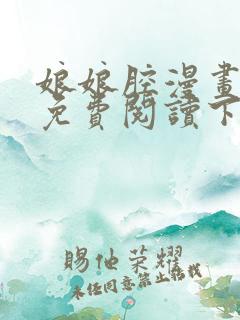 娘娘腔漫畫
免費閱讀下
賜他荣耀
未经同意禁止转载